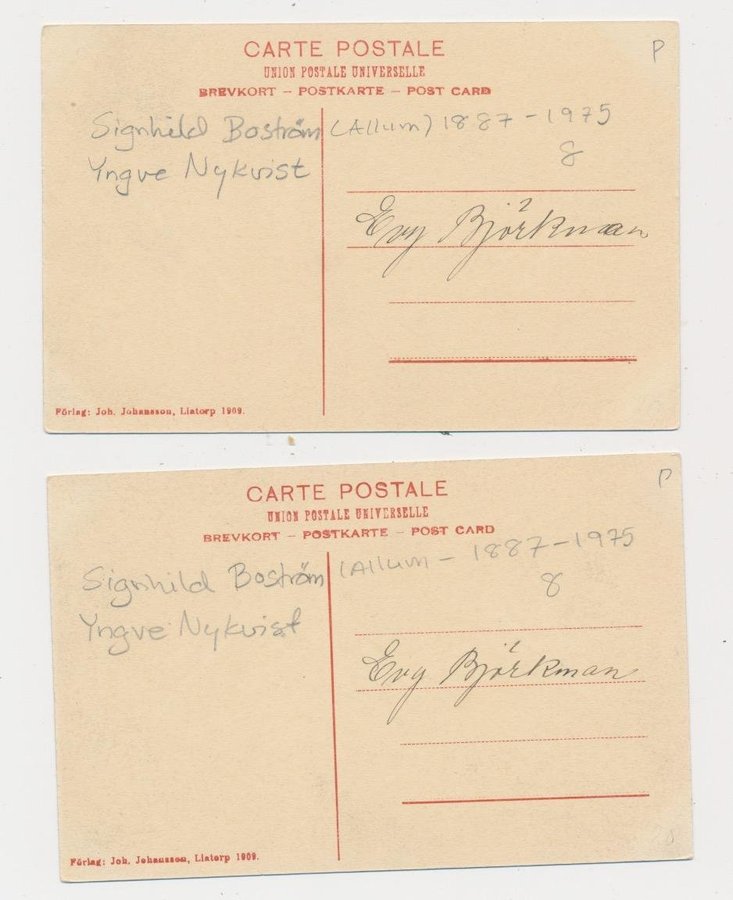 CARTE POSTALE
P
UNION POSTALE UNIVERSELLE
BREVKORT – POSTKARTE – POST CARD
Signhild Boström (Allum) 1887-1975
8
Yngve Nykvist
Evy Björkman
Förlag: Joh. Johansson, Liatorp 1909.
CARTE POSTALE
P
UNION POSTALE UNIVERSELLE
BREVKORT – POSTKARTE – POST CARD
Signhild Boström (Allum - 1887-1975
8
Yngve Nykvist
Evy Björkman
Förlag: Joh. Johansson, Liatorp 1909.